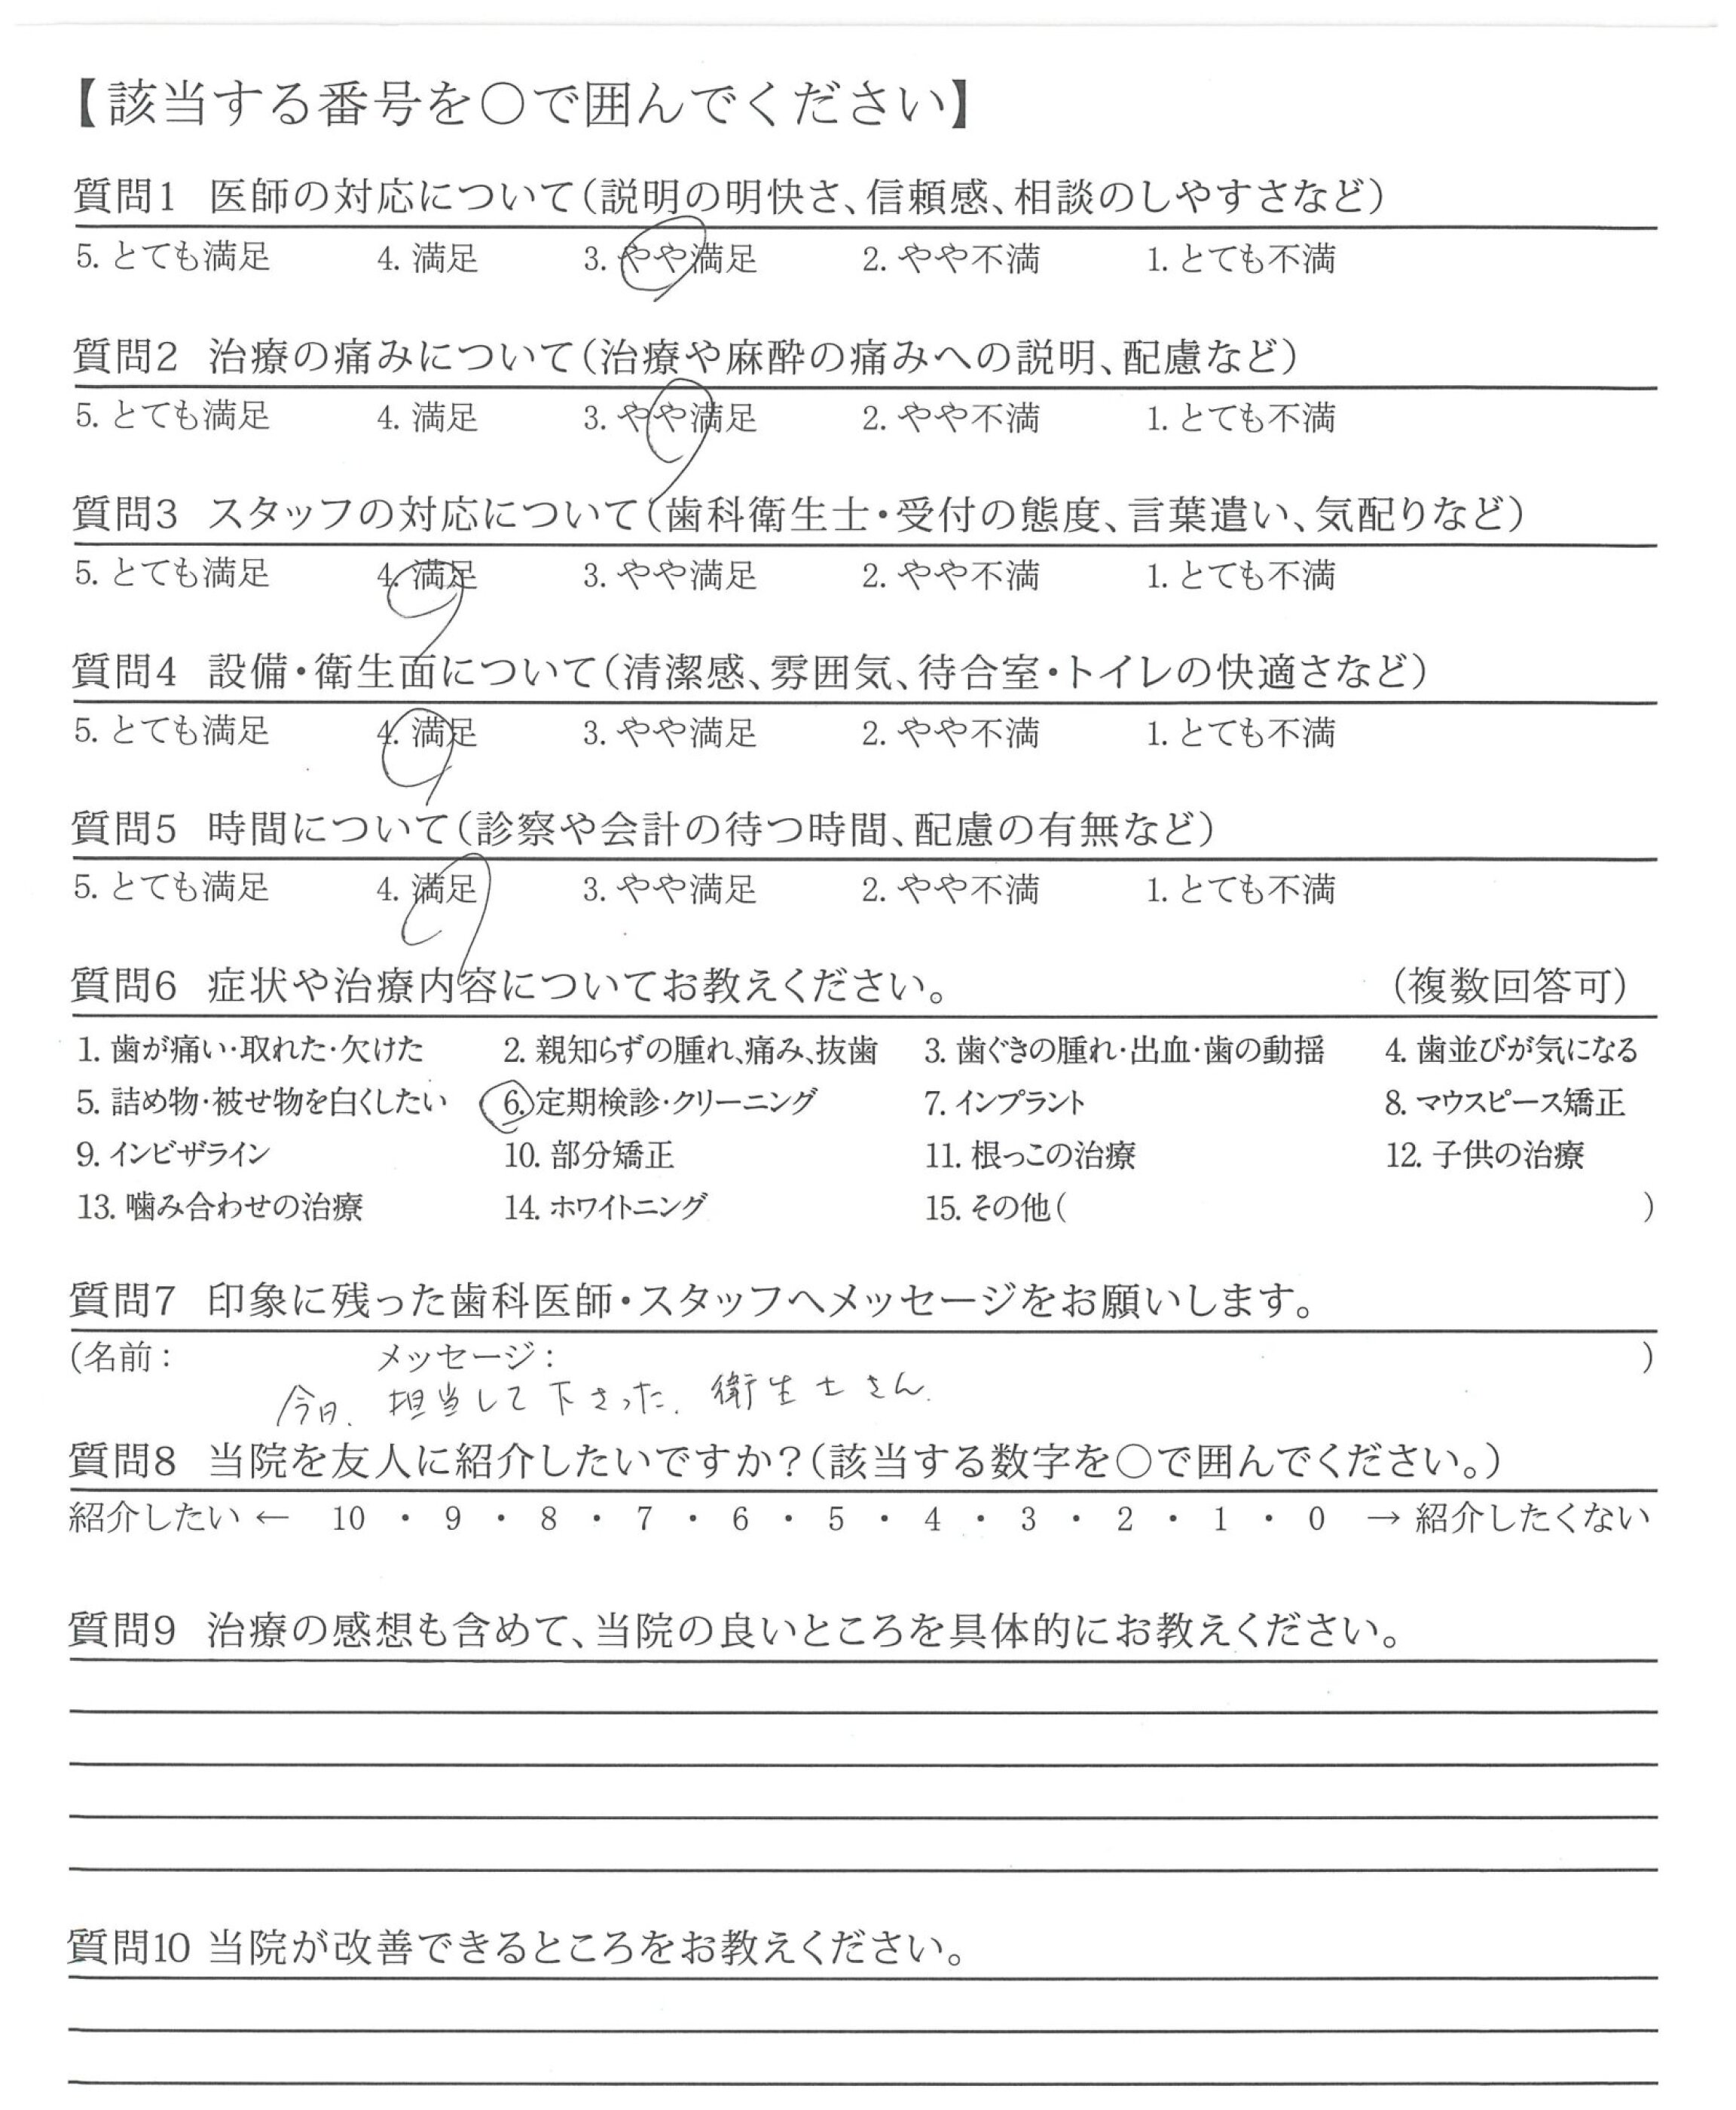 【該当する番号を○で囲んでください】
質問1 医師の対応について(説明の明快さ、信頼感、相談のしやすさなど)
5. とても満足 4. 満足 3. やや満足 2. やや不満 1. とても不満
質問2 治療の痛みについて(治療や麻酔の痛みへの説明、配慮など)
5. とても満足 4. 満足 3. やや満足 2. やや不満 1. とても不満
質問3 スタッフの対応について(歯科衛生士・受付の態度、言葉遣い、気配りなど)
5. とても満足 4. 満足 3. やや満足 2. やや不満 1. とても不満
質問4 設備・衛生面について(清潔感、雰囲気、待合室・トイレの快適さなど)
5. とても満足 4. 満足 3. やや満足 2. やや不満 1. とても不満
質問5 時間について(診察や会計の待つ時間、配慮の有無など)
5. とても満足 4. 満足 3. やや満足 2. やや不満 1. とても不満
質問6 症状や治療内容についてお教えください。 (複数回答可)
1. 歯が痛い・取れた・欠けた 2. 親知らずの腫れ、痛み、抜歯 3. 歯ぐきの腫れ・出血・歯の動揺 4. 歯並びが気になる
5. 詰め物・被せ物を白くしたい 6. 定期検診・クリーニング 7. インプラント 8. マウスピース矯正
9. インビザライン 10. 部分矯正 11. 根っこの治療 12. 子供の治療
13. 噛み合わせの治療 14. ホワイトニング 15. その他( )
質問7 印象に残った歯科医師・スタッフへメッセージをお願いします。
(名前: メッセージ: )
今日、担当して下さった、衛生士さん.
質問8 当院を友人に紹介したいですか?(該当する数字を○で囲んでください。)
紹介したい ← 10 ・ 9 ・ 8 ・ 7 ・ 6 ・ 5 ・ 4 ・ 3 ・ 2 ・ 1 ・ 0 → 紹介したくない
質問9 治療の感想も含めて、当院の良いところを具体的にお教えください。
質問10 当院が改善できるところをお教えください。